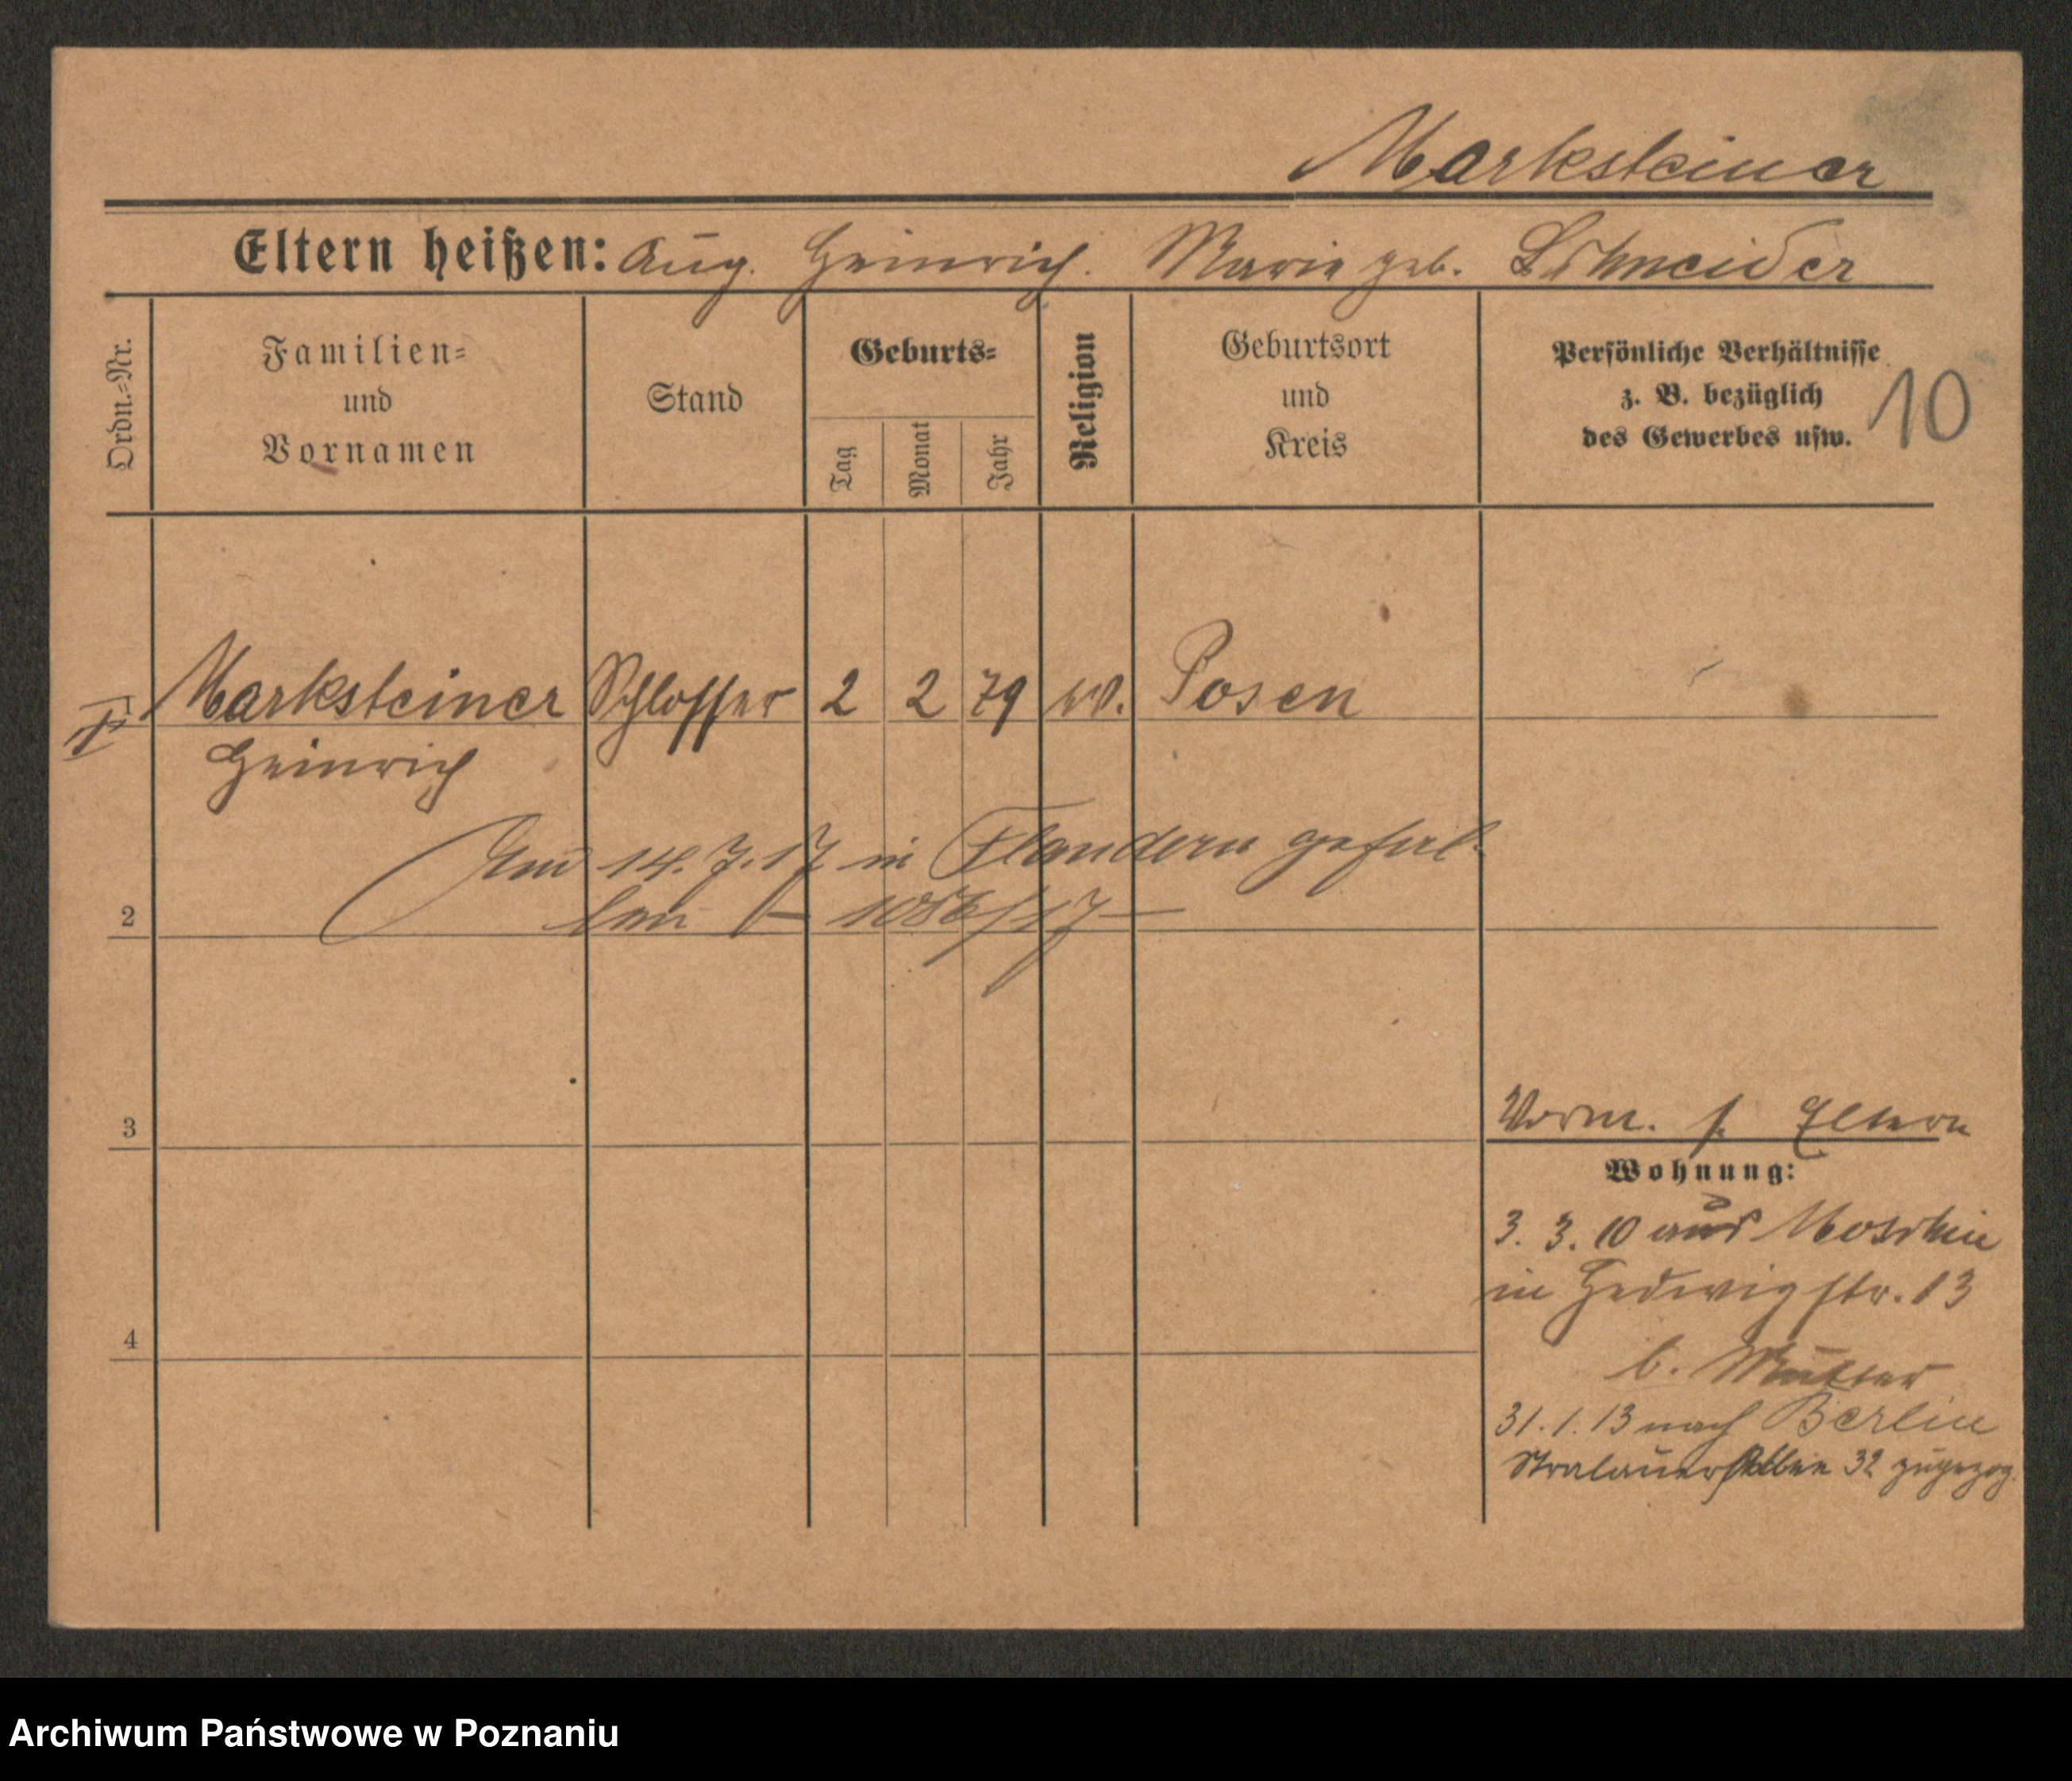 Marksteiner
Eltern heißen: Aug. Heinrich. Marie geb. Schneider
Ordn.-Nr.
Familien-
und
Vornamen
Stand
Geburts-
Tag
Monat
Jahr
Religion
Geburtsort
und
Kreis
Persönliche Verhältnisse
z. B. bezüglich
des Gewerbes usw.
10
Marksteiner Schlosser 2 2 79 Posen
Heinrich
Am 14. 7. 17 in Flandern gefal-
len
2
3
4
Vorm. s. Eltern
Wohnung:
3. 3. 10 aus Moschin
in Hedwigstr. 13
b. Mutter
31. 1. 13 nach Berlin
Stralauer 32 zugezog.
Archiwum Państwowe w Poznaniu